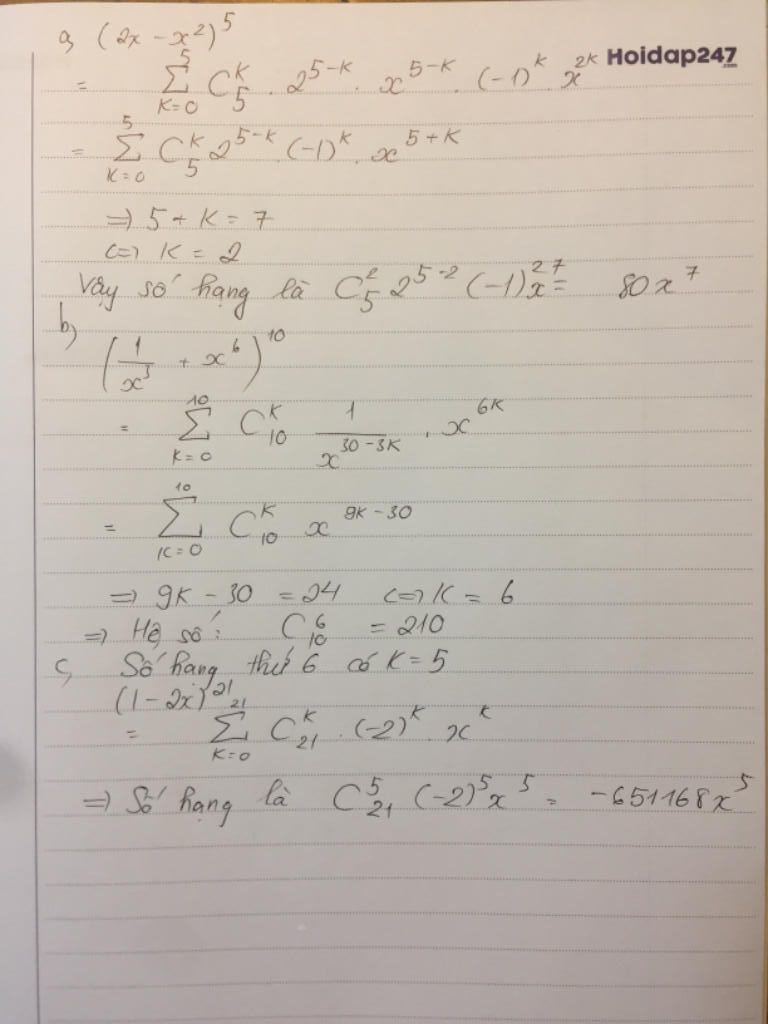 a, (2x - x²)⁵
Hoidap247
= \sum_{K=0}^{5} C_5^K . 2^{5-K} . x^{5-K} . (-1)^K . x^{2K}
= \sum_{K=0}^{5} C_5^K 2^{5-K} . (-1)^K . x^{5+K}
=> 5 + K = 7
<=> K = 2
Vậy số hạng là C_5^2 2^{5-2} (-1)^2 x^7 = 80x^7
b,
(\frac{1}{x^3} + x^6)^{10}
= \sum_{K=0}^{10} C_{10}^K \frac{1}{x^{30-3K}} . x^{6K}
= \sum_{K=0}^{10} C_{10}^K x^{9K-30}
=> 9K - 30 = 24 <=> K = 6
=> Hệ số: C_{10}^6 = 210
c, Số hạng thứ 6 có K = 5
(1 - 2x)^{21}
= \sum_{K=0}^{21} C_{21}^K . (-2)^K . x^K
=> Số hạng là C_{21}^5 (-2)^5 x^5 = -651168x^5